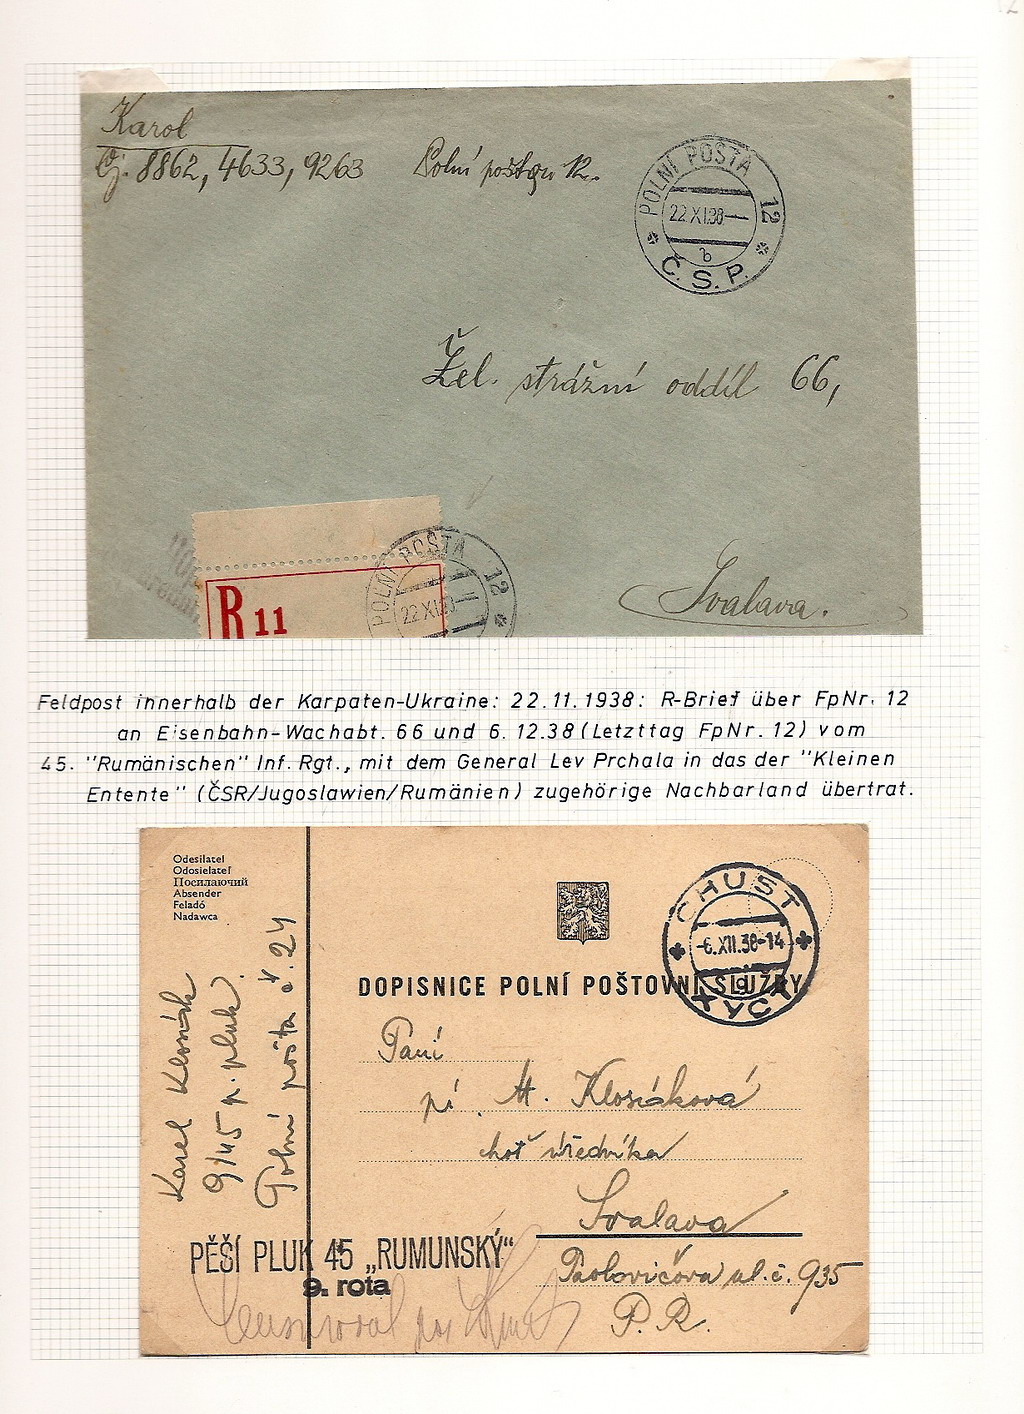 Karol
Čj. 8862, 4633, 9263 Polní pošta 12.
POLNÍ POŠTA 12
22 XI.38
b
Č.S.P.
Žel. strážní oddíl 66,
POLNÍ POŠTA 12
22 XI.38
R 11
Svalava.
Feldpost innerhalb der Karpaten-Ukraine: 22.11.1938: R-Brief über FpNr. 12
an Eisenbahn-Wachabt. 66 und 6.12.38 (Letzttag FpNr. 12) vom
45. "Rumänischen" Inf. Rgt., mit dem General Lev Prchala in das der "Kleinen
Entente" (ČSR/Jugoslawien/Rumänien) zugehörige Nachbarland übertrat.
Odesílatel
Odosielateľ
Посилаючий
Absender
Feladó
Nadawca
CHUST
-6.XII.38-14
g
ХУСТ
DOPISNICE POLNÍ POŠTOVNÍ SLUŽBY
Karel Klosiák
9/45 p. pluk.
Polní pošta č. 24
Paní
pí. M. Klosiáková
choť úředníka
Svalava
Pavlovičova ul. č. 935
P. R.
PĚŠÍ PLUK 45 „RUMUNSKÝ“
9. rota